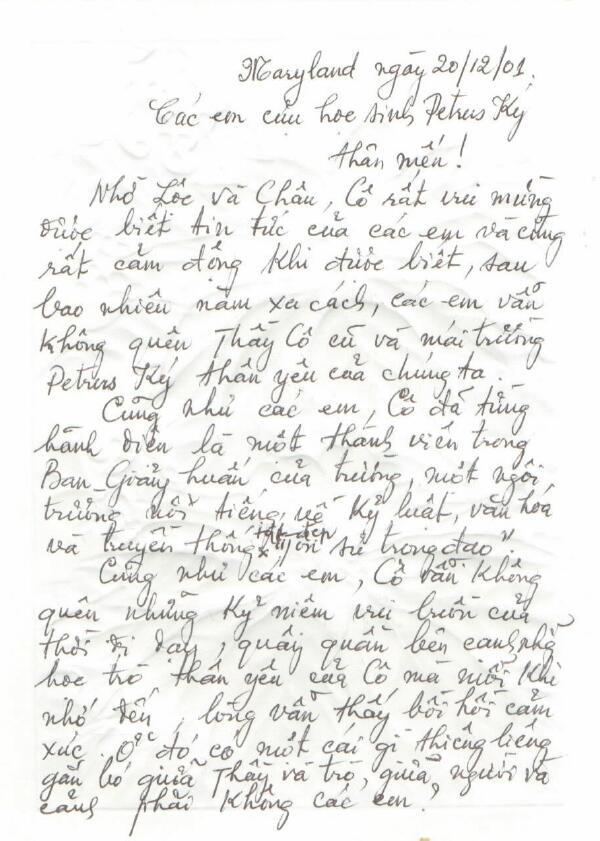 Maryland ngày 20/12/01.
Các em cựu học sinh Petrus Ký
thân mến!
Nhờ Lộc và Châu, Cô rất vui mừng
được biết tin tức của các em và cũng
rất cảm động khi được biết, sau
bao nhiêu năm xa cách, các em vẫn
không quên Thầy Cô cũ và mái trường
Petrus Ký thân yêu của chúng ta.
Cũng như các em, Cô đã từng
hãnh diện là một thành viên trong
Ban Giảng huấn của trường, một ngôi
trường nổi tiếng về kỷ luật, văn hóa
và truyền thống tốt đẹp "Tôn sư trọng đạo".
Cũng như các em, Cô vẫn không
quên những kỷ niệm vui buồn của
thời đi dạy, quây quần bên cạnh
học trò thân yêu của Cô mà mỗi khi
nhớ đến, lòng vẫn thấy bồi hồi cảm
xúc. Ở đó có một cái gì thiêng liêng
gắn bó giữa Thầy và trò, giữa người và
cảnh phải không các em?